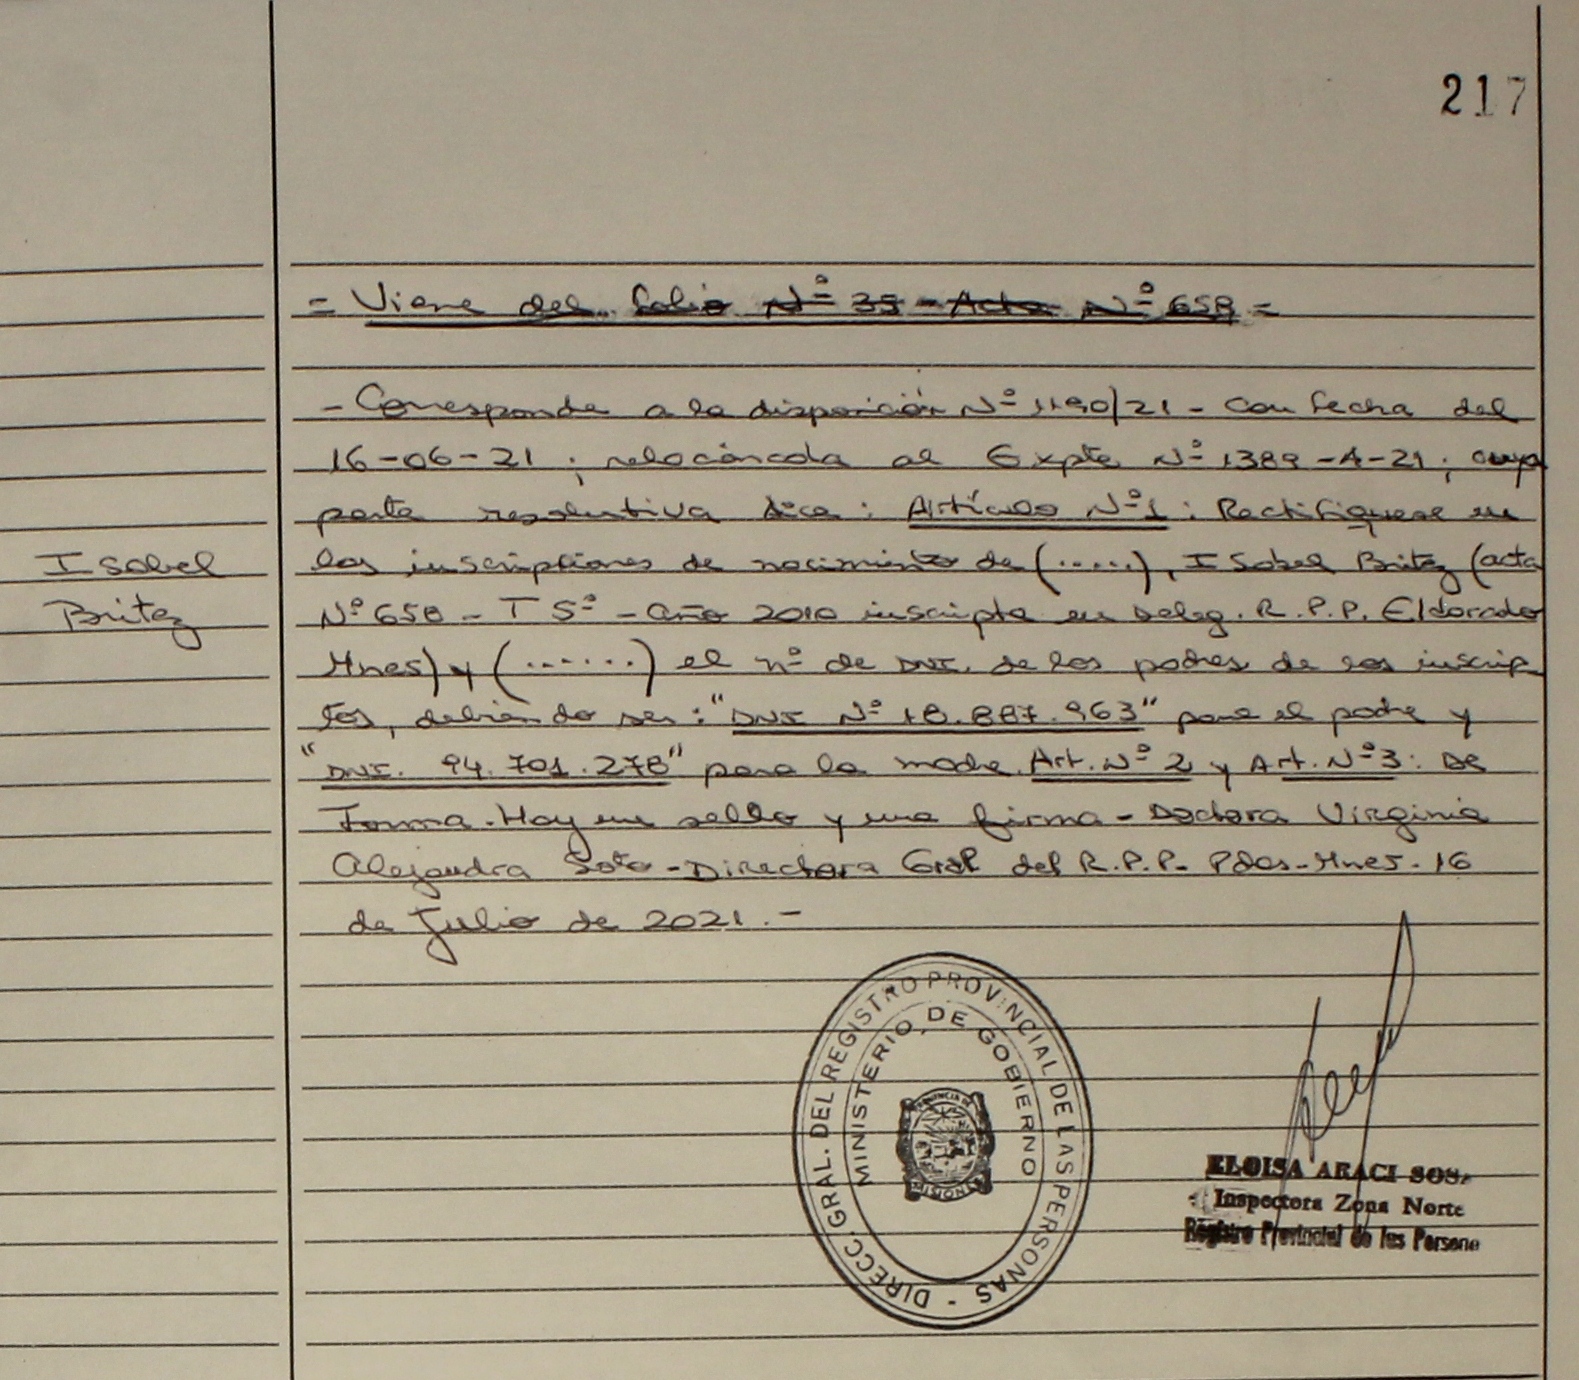 217
= Viene del Folio Nº 35 - Acta Nº 658 =
- Corresponde a la disposición Nº 1190/21 - con fecha del
16-06-21; relocionada al Expte Nº 1389-A-21; cuya
parte resolutiva dice: Artículo Nº1: Rectifiquese en
Isabel
las inscripciones de nacimiento de (.....), Isabel Britez (acta
Britez
Nº 658 - T 5º - año 2010 inscripta en Deleg. R.P.P. Eldorado
Mnes) y (......) el nº de DNI. de los padres de los inscrip
tos, debiendo ser: "DNI Nº 18.887.963" para el padre y
"DNI. 94.701.278" para la madre. Art. Nº 2 y Art. Nº 3: De
Forma. Hay un sello y una firma - Doctora Virginia
Alejandra Soto - Directora Gral del R.P.P. Pdas - Mnes - 16
de Julio de 2021.-
DIRECC. GRAL. DEL REGISTRO PROVINCIAL DE LAS PERSONAS -
MINISTERIO DE GOBIERNO
PROVINCIA DE
MISIONES
ELOISA ARACI SOSA
Inspectora Zona Norte
Registro Provincial de las Persona